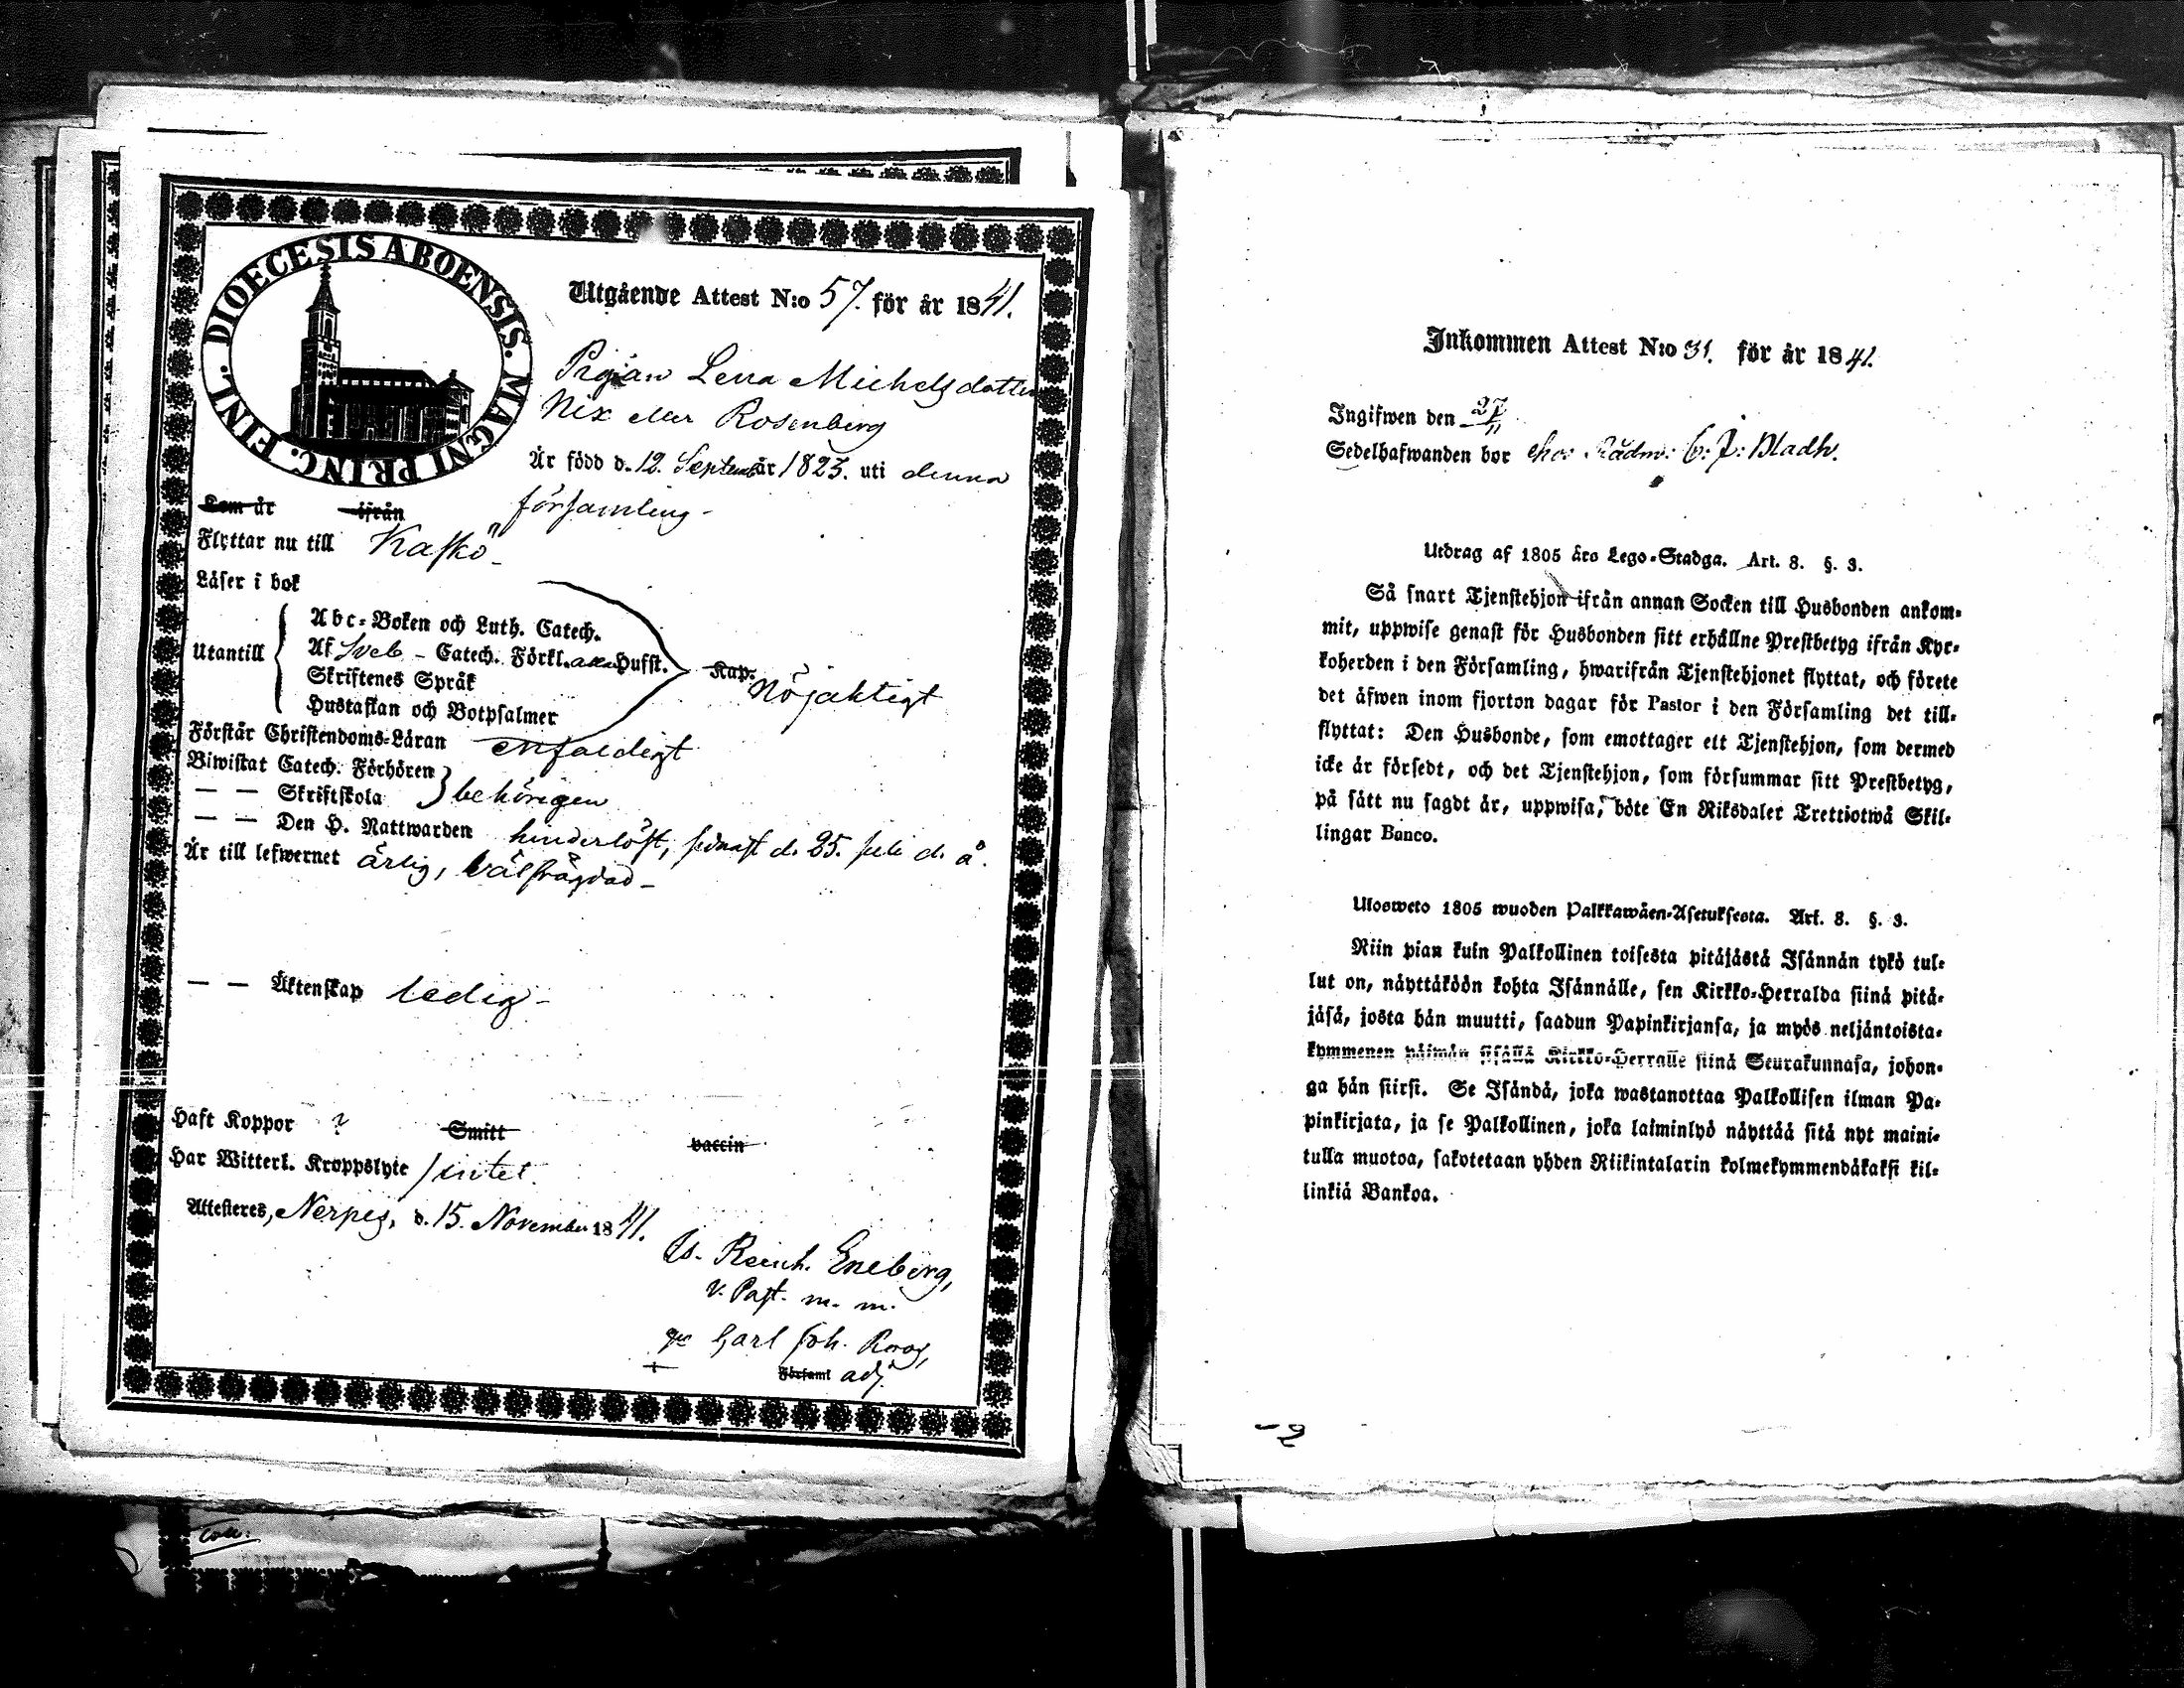 DIOECESIS ABOENSIS. MAGNI PRINC. FINL.
Utgående Attest N:o 57. för år 1841.
Pigan Lena Michelsdotter
Nix eller Rosenberg
Är född d. 12. September år 1823. uti denna
församling -
Kom år ifrån
Flyttar nu till Kaskö -
Läser i bok
Abc-Boken och Luth. Catech.
Utantill
Af Sveb - Catech. Förkl. Husst. Kap.
nöjaktigt
Skriftenes Språk
Hustaflan och Botpsalmer
Förstår Christendoms-Läran enfaldigt
Biwistat Catech. Förhören
— — Skriftskola behörigen
— — Den H. Nattwarden hinderlöst, sednast d. 25. Juli d. å.
Är till lefwernet ärlig, välfrägdad -
— — Äktenskap ledig -
Haft Koppor ? Smitt vaccin
Har Witterl. Kroppslyte intet.
Attesteres, Nerpes, d. 15. November 1841.
Is. Reinh. Eneberg,
v. Past. m. m.
Carl Joh. Roos,
Församl adj.
Coll:
Inkommen Attest N:o 31. för år 1841.
Ingifwen den 27/11
Sedelhafwanden bor hos Rådm: C: J: Bladh.
Utdrag af 1805 års Lego-Stadga. Art. 8. §. 3.
Så snart Tjenstehjon ifrån annan Socken till Husbonden ankom-
mit, uppwise genast för Husbonden sitt erhållne Prestbetyg ifrån Kyr-
koherden i den Församling, hwarifrån Tjenstehjonet flyttat, och förete
det äfwen inom fjorton dagar för Pastor i den Församling det till-
flyttat: Den Husbonde, som emottager ett Tjenstehjon, som dermed
icke är försedt, och det Tjenstehjon, som försummar sitt Prestbetyg,
på sätt nu sagdt är, uppwisa, böte En Riksdaler Trettiotwå Skil-
lingar Banco.
Uloswetö 1805 wuoden Palkkawäen-Asetuksesta. Art. 8. §. 3.
Niin pian kuin Palkollinen toisesta pitäjästä Isännän tykö tul-
lut on, näyttäköön kohta Isännälle, sen Kirkko-Herralda siinä pitä-
jäsä, josta hän muutti, saadun Papinkirjansa, ja myös neljäntoista-
kymmenen päiwän sisällä Kirkko-Herralle siinä Seurakunnasa, johon-
ga hän siirsi. Se Isändä, joka wastanottaa Palkollisen ilman Pa-
pinkirjata, ja se Palkollinen, joka laiminlyö näyttää sitä nyt maini-
tulla muotoa, sakotetaan yhden Riikintalarin kolmekymmendäkaksi kil-
linkiä Bankoa.